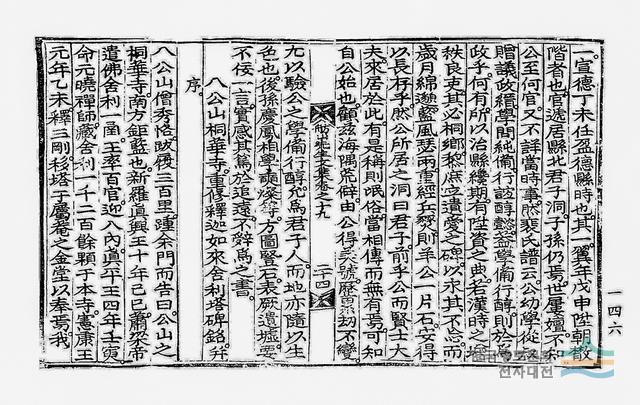 一宣德丁未任盈德縣時也其一翼年戊申陞朝散
階者也官遞居縣北君子洞子孫仍焉世屢嬗不知
公至何官又不詳當時事然裴氏譜云公幼學從
贈議政纘學問純備行誼醇
政乎何有所以治縣纔期有陞資之典若漢時之
秩良吏其必桐鄉黎庶立遺愛之碑以永其不忘而
歲月綿邈藍風瑟雨重經兵燹則羊公一片石安得
以長存乎然公所居之洞曰君子前乎公而賢士大
夫來居於此有是稱則氓俗當相傳而無有焉可知
自公始也顧玆海隅荒僻由公得美號歷累劫不變
九以驗公之學備行醇允爲君子人而地亦隨以生
色也後孫慶鳳相學
不佞一言實感其篤於追遠不辭爲之書
八公山桐華寺重修釋迦如來舍利塔碑銘幷
序
八公山僧秀恪跋履三百里踵余門而告曰公山之
桐華寺南方鉅藍也新羅眞興王十年己巳蕭梁帝
遣佛舍利一函王率百官迎入內眞平王四年壬寅
命元曉禪師藏舍利一千二百餘顆于本寺憲康王
元年乙未釋三剛移塔于屬庵之金堂以奉焉我
二十四
一四六
전자대전